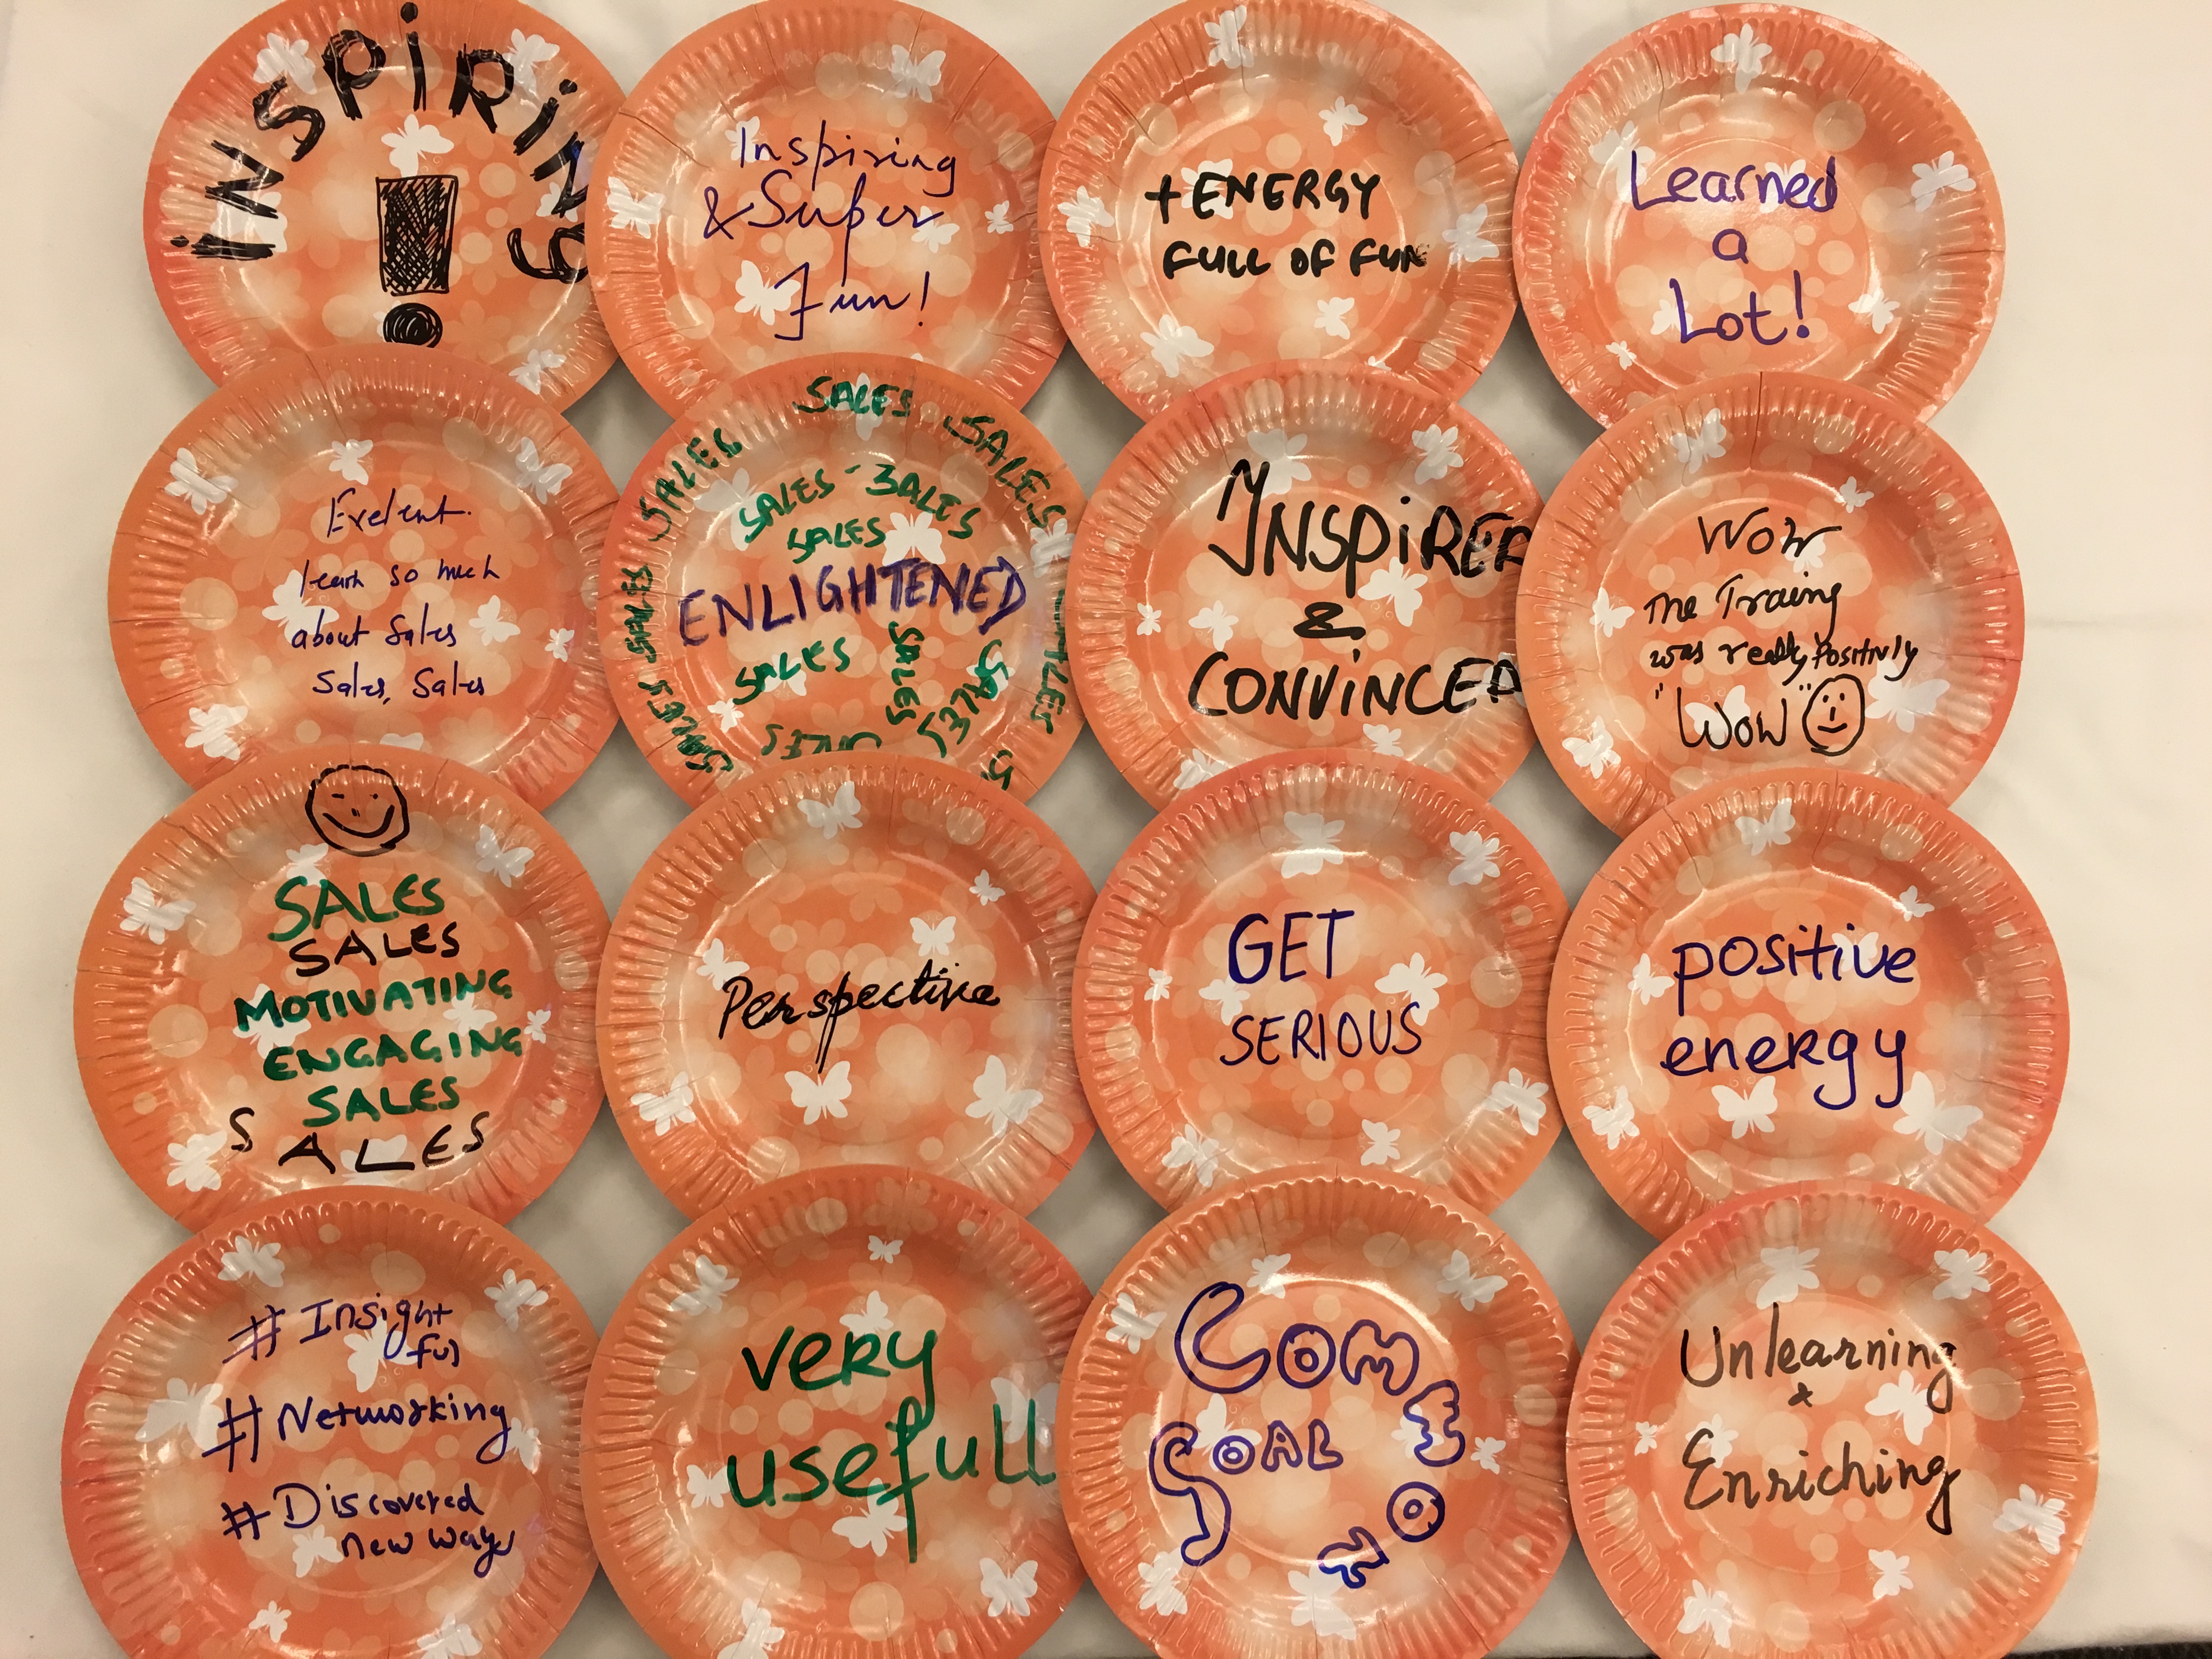 iNSPiRiNG
!
Inspiring
& Super
Fun!
+ ENERGY
FULL OF FUN
Learned
a
Lot!
Exelent.
learn so much
about Sales
Sales, Sales
SALES
SALES
SALES
SALES - SALES
SALES
ENLIGHTENED
SALES
SALES
SALES
SALES
SALES
SALES
INSPIRED
&
CONVINCED
WOW
The Traing
was really, Positivly
"WOW"
SALES
SALES
MOTIVATING
ENGAGING
SALES
SALES
Perspective
GET
SERIOUS
positive
energy
# Insight
ful
# Networking
# Discovered
new ways
very
usefull
COME
TO
GOAL
Unlearning
&
Enriching